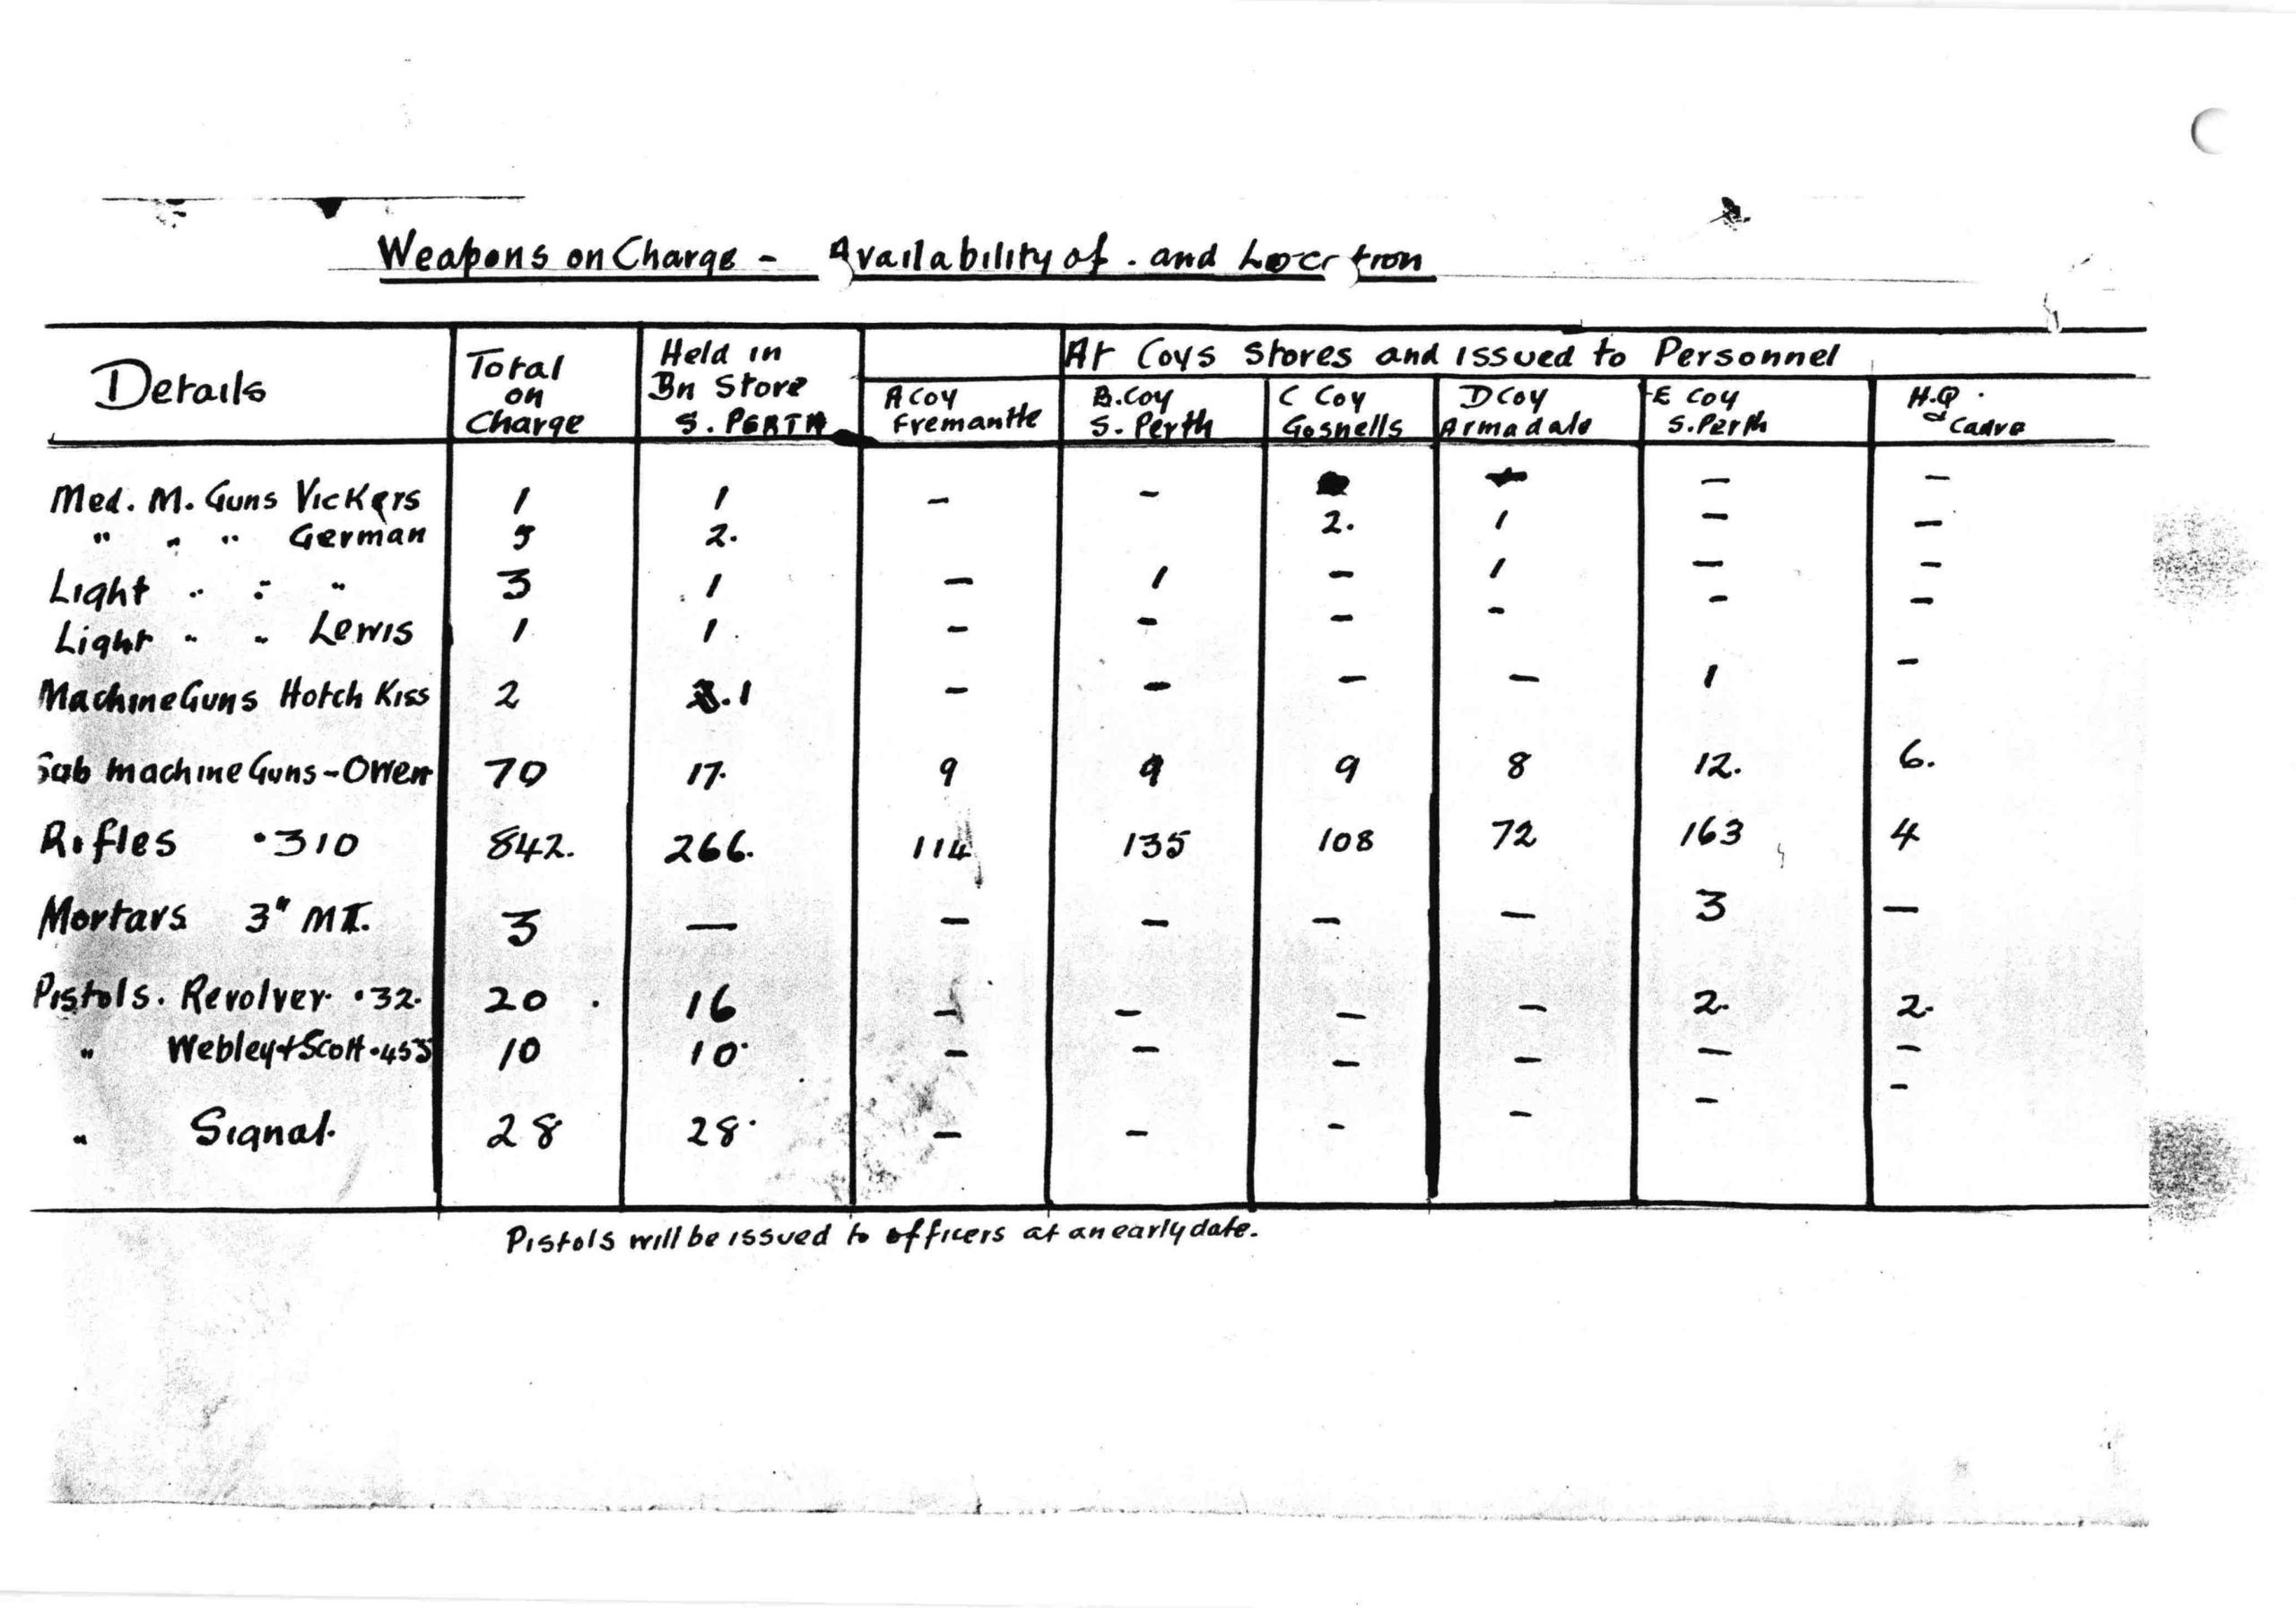 Weapons on Charge - Availability of . and Location
Details
Total on Charge
Held in Bn Store S. PERTH
At Coys Stores and issued to Personnel
A Coy Fremantle
B. Coy S. Perth
C Coy Gosnells
D Coy Armadale
E Coy S. Perth
H.Q. & Cadre
Med. M. Guns Vickers 1 1 - - - - -
" " " German 5 2. 2. 1 - -
Light " " " 3 1 - 1 - 1 - -
Light " " Lewis 1 1. - - - - - -
Machine Guns Hotch Kiss 2 1 - - - - 1 -
Sub machine Guns - Owen 70 17. 9 9 9 8 12. 6.
Rifles .310 842. 266. 114 135 108 72 163 4
Mortars 3" 3 — - - - - 3 —
Pistols. Revolver .32. 20 16 - - - - 2. 2.
" Webley & Scott .455 10 10 - - - - - -
" Signal. 28 28 - - - - - -
Pistols will be issued to officers at an early date.